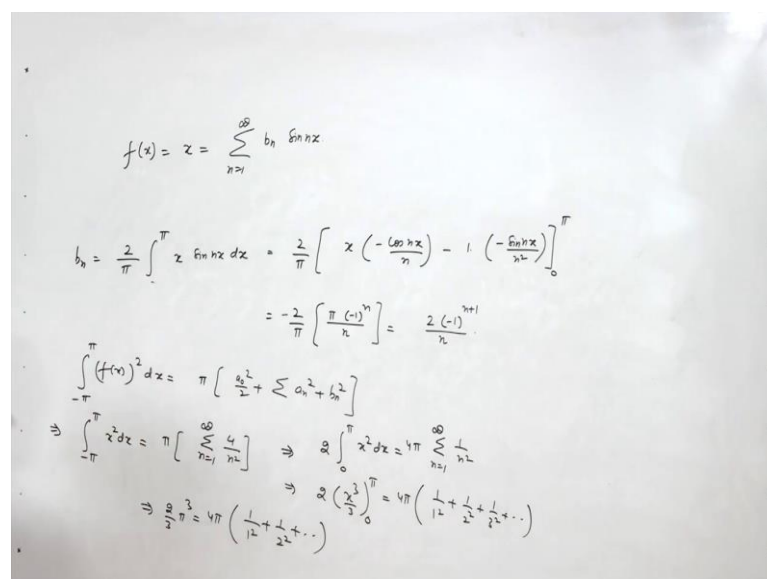 f(x) = x = ∑_{n=1}^{∞} b_n Sin nx
b_n = 2/π ∫^{π} x Sin nx dx = 2/π [ x (-Cos nx / n) - 1. (-Sin nx / n²) ]_0^π
= -2/π [ π (-1)^n / n ] = 2 (-1)^{n+1} / n .
∫_{-π}^{π} (f(x))² dx = π [ a_0²/2 + ∑ a_n² + b_n² ]
⇒ ∫_{-π}^{π} x² dx = π [ ∑_{n=1}^{∞} 4/n² ] ⇒ 2 ∫_0^π x² dx = 4π ∑_{n=1}^{∞} 1/n²
⇒ 2 (x³/3)_0^π = 4π ( 1/1² + 1/2² + 1/3² + .. )
⇒ 2/3 π³ = 4π ( 1/1² + 1/2² + .. )